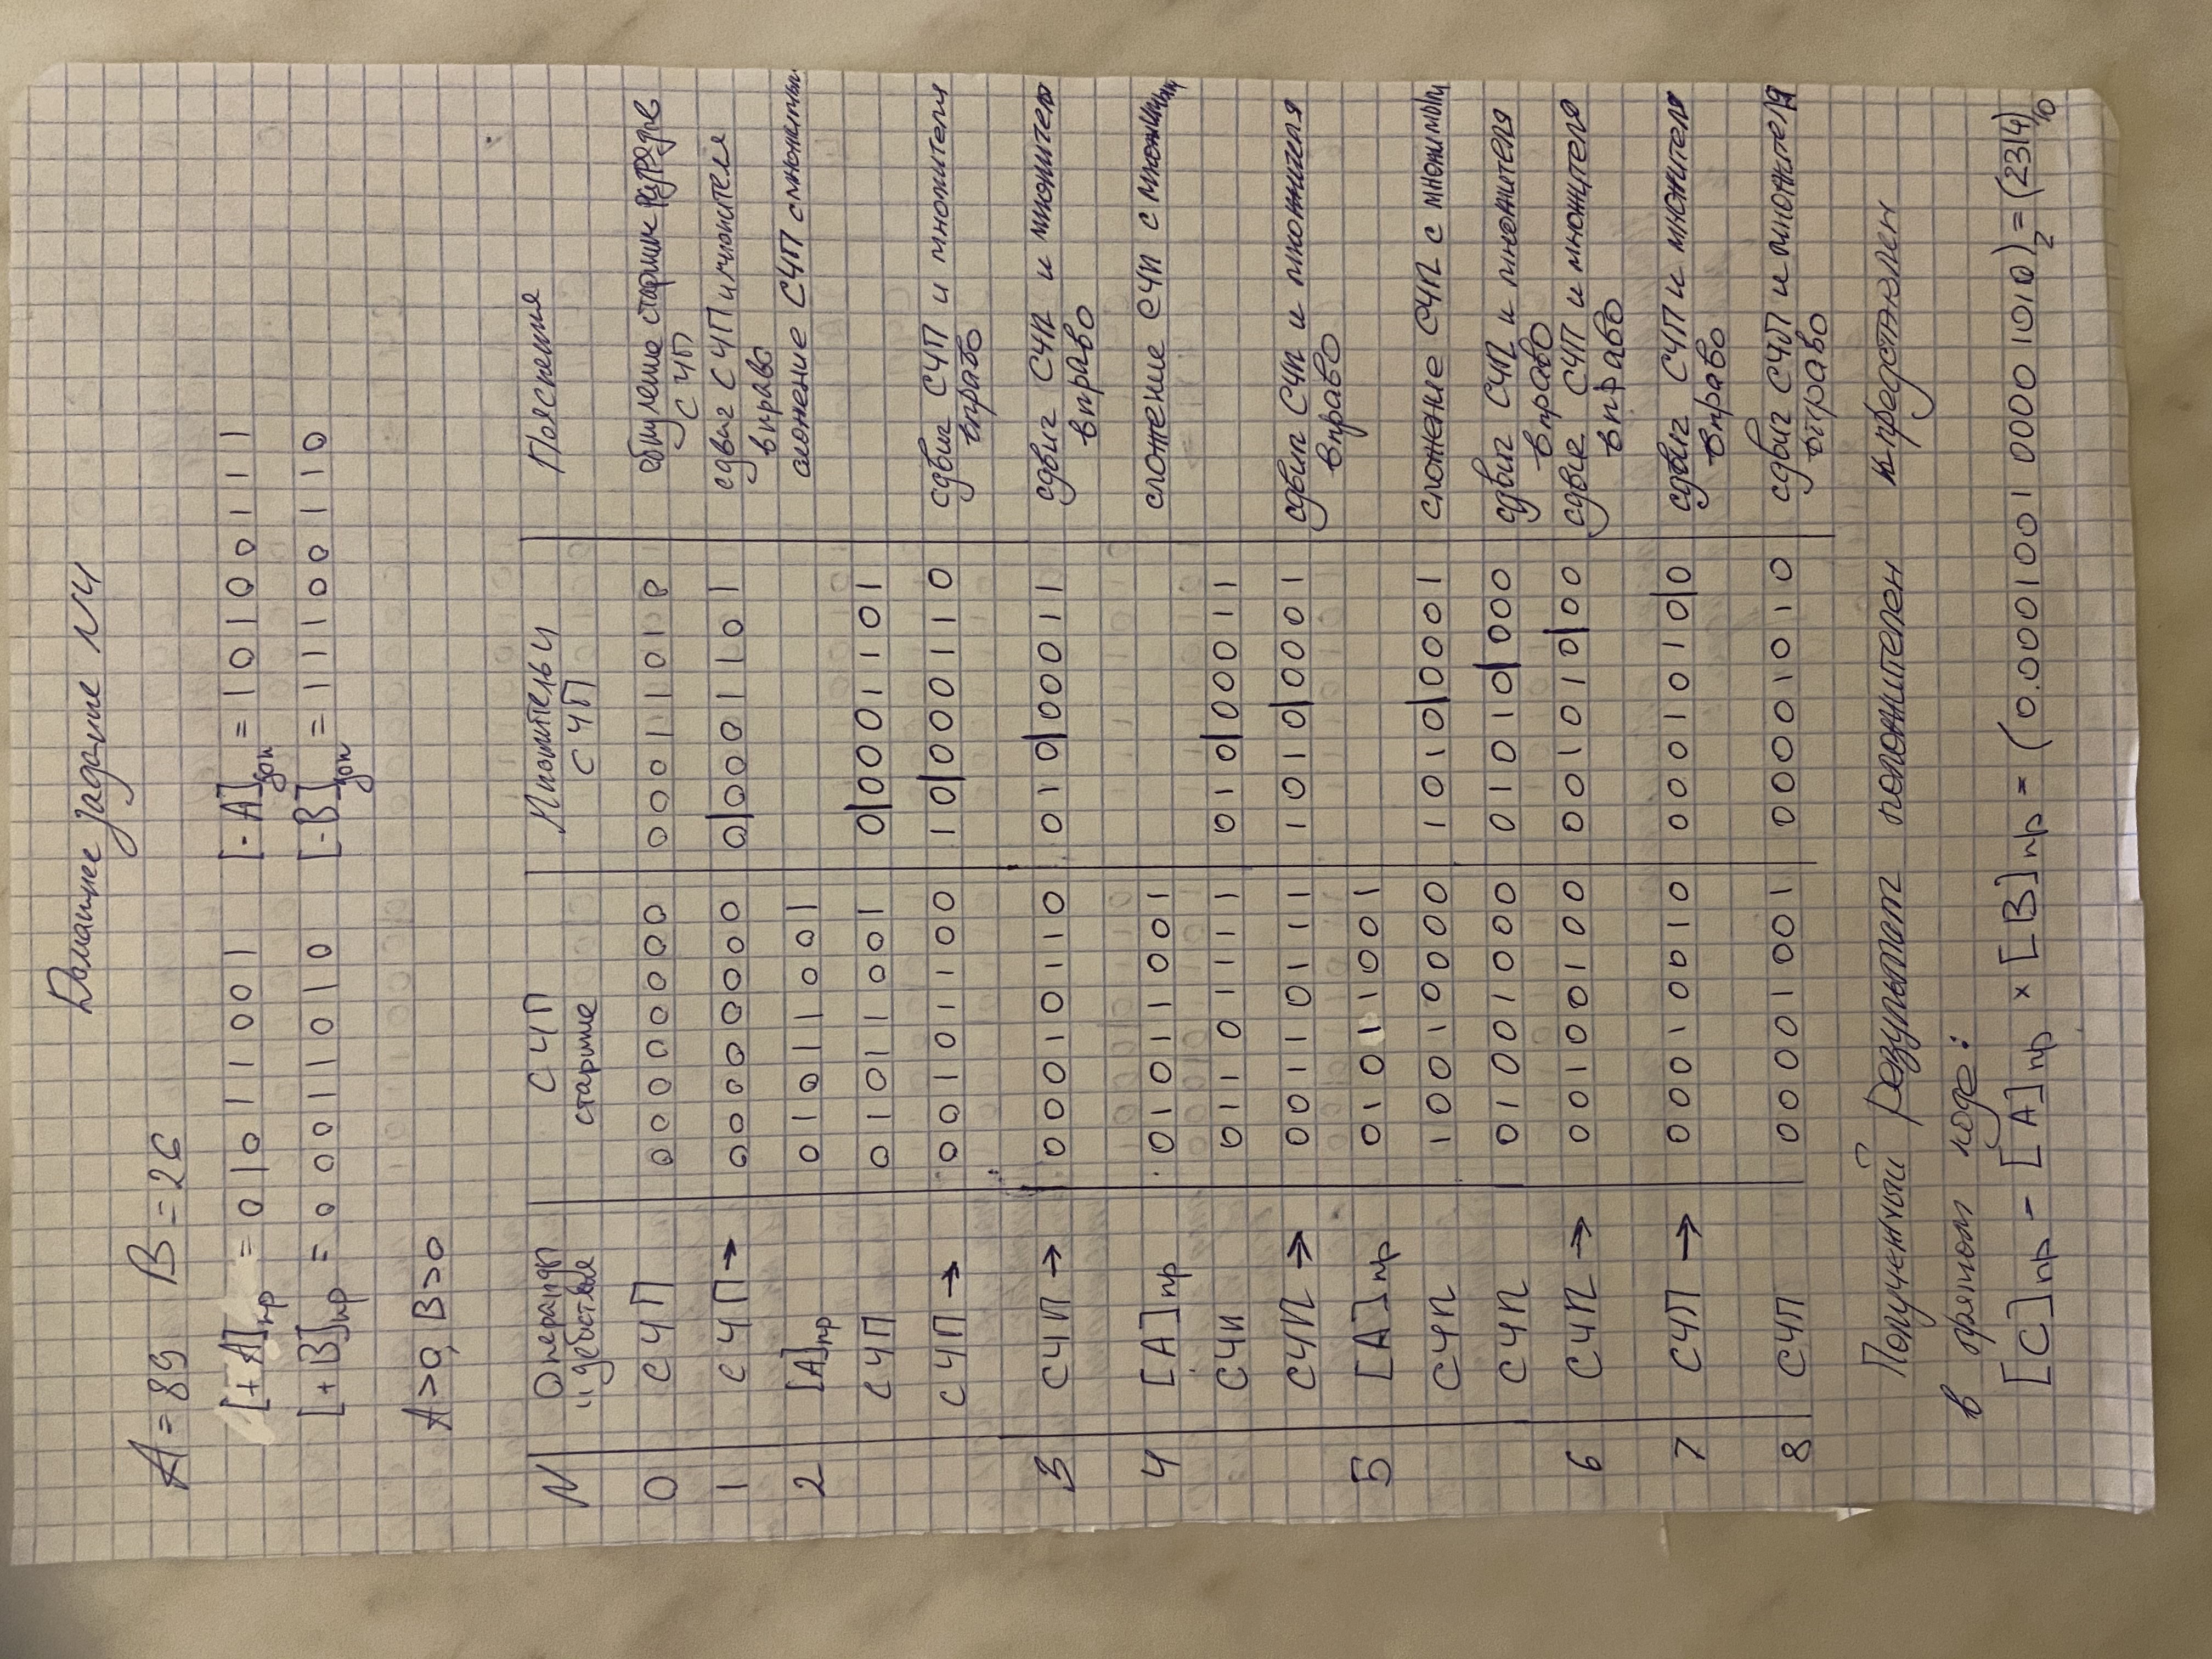 Домашнее задание N4
A = 89 B = 26
[+A]пр = 01011001 [-A]доп = 10100111
[+B]пр = 00011010 [-B]доп = 11100110
A>0, B>0
N Операнды и действия СЧП старшие Множитель и СЧП Пояснения
0 СЧП 00000000 00011010 обнуление старших разрядов СЧП
1 СЧП→ 00000000 0|0001101 сдвиг СЧП и множителя вправо
2 [A]пр 01011001 сложение СЧП с множимым
СЧП 01011001 0|0001101
СЧП→ 00101100 10|000110 сдвиг СЧП и множителя вправо
3 СЧП→ 00010110 010|00011 сдвиг СЧП и множителя вправо
4 [A]пр 01011001 сложение СЧП с множимым
СЧП 01101111 010|00011
СЧП→ 00110111 1010|0001 сдвиг СЧП и множителя вправо
5 [A]пр 01011001
СЧП 10010000 1010|0001 сложение СЧП с множимым
СЧП 01001000 01010|000 сдвиг СЧП и множителя вправо
6 СЧП→ 00100100 001010|00 сдвиг СЧП и множителя вправо
7 СЧП→ 00010010 0001010|0 сдвиг СЧП и множителя вправо
8 СЧП 00001001 00001010 сдвиг СЧП и множителя вправо
Полученный результат положителен и представлен
в прямом коде:
[C]пр = [A]пр × [B]пр = (0.0001001 00001010)2 = (2314)10